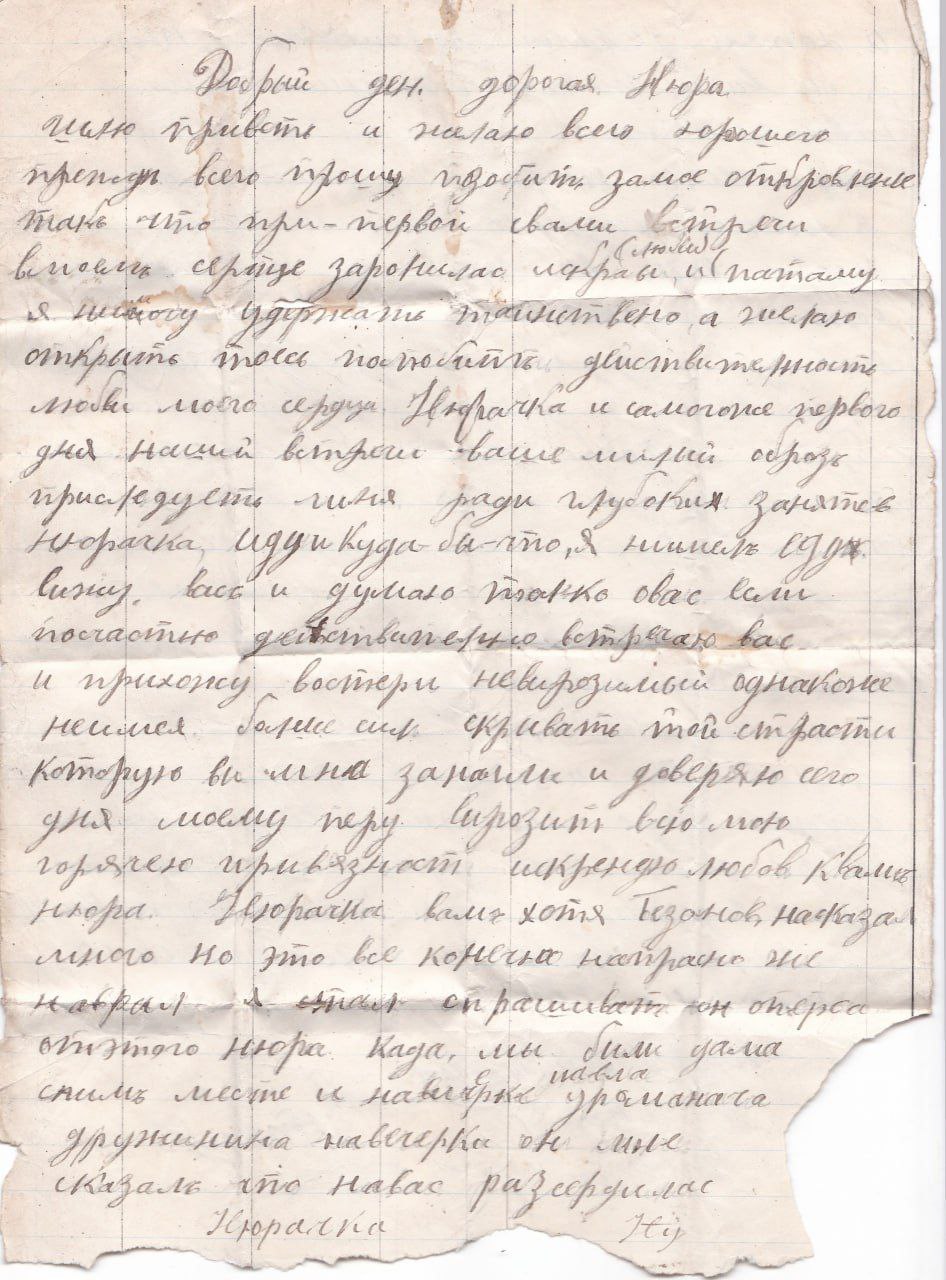 Добрый ден. дорогая Нюра
шлю приветь и желаю всего хорошего
всего прошу замое откровение
такъ что при-первой свами встречи
вмоемъ серце заронилас искра (любви) и патаму
я нимогу удержать таинствено, а желаю
открыть тоесь действителность
любви моего сердца Нюрачка и самогоже первого
дня нашей встречи ваше милый образъ
приследуеть миня ради глубоких занятев
Нюрачка, иду и куда-бы-что, я
вижу. васъ и думаю толко овас если
посчастью действително встречаю вас
и прихожу востери невирозимый однакоже
неимея болше сил скривать той страсти
которую ви мна и доверяю сего
дня моему перу вирозит всю мою
горячею привязност искренюю любов квамъ
нюра. Нюрачка вамъ хотя наказал
много но это все конечна напрасно же
наврал я стал спрашиват он оперса
отэтого нюра када, мы били дама
снимъ месте и навичерке павла уроманача
дружинина навечерки он мне
сказалъ что навас разсердилас
Нюрачка Ну